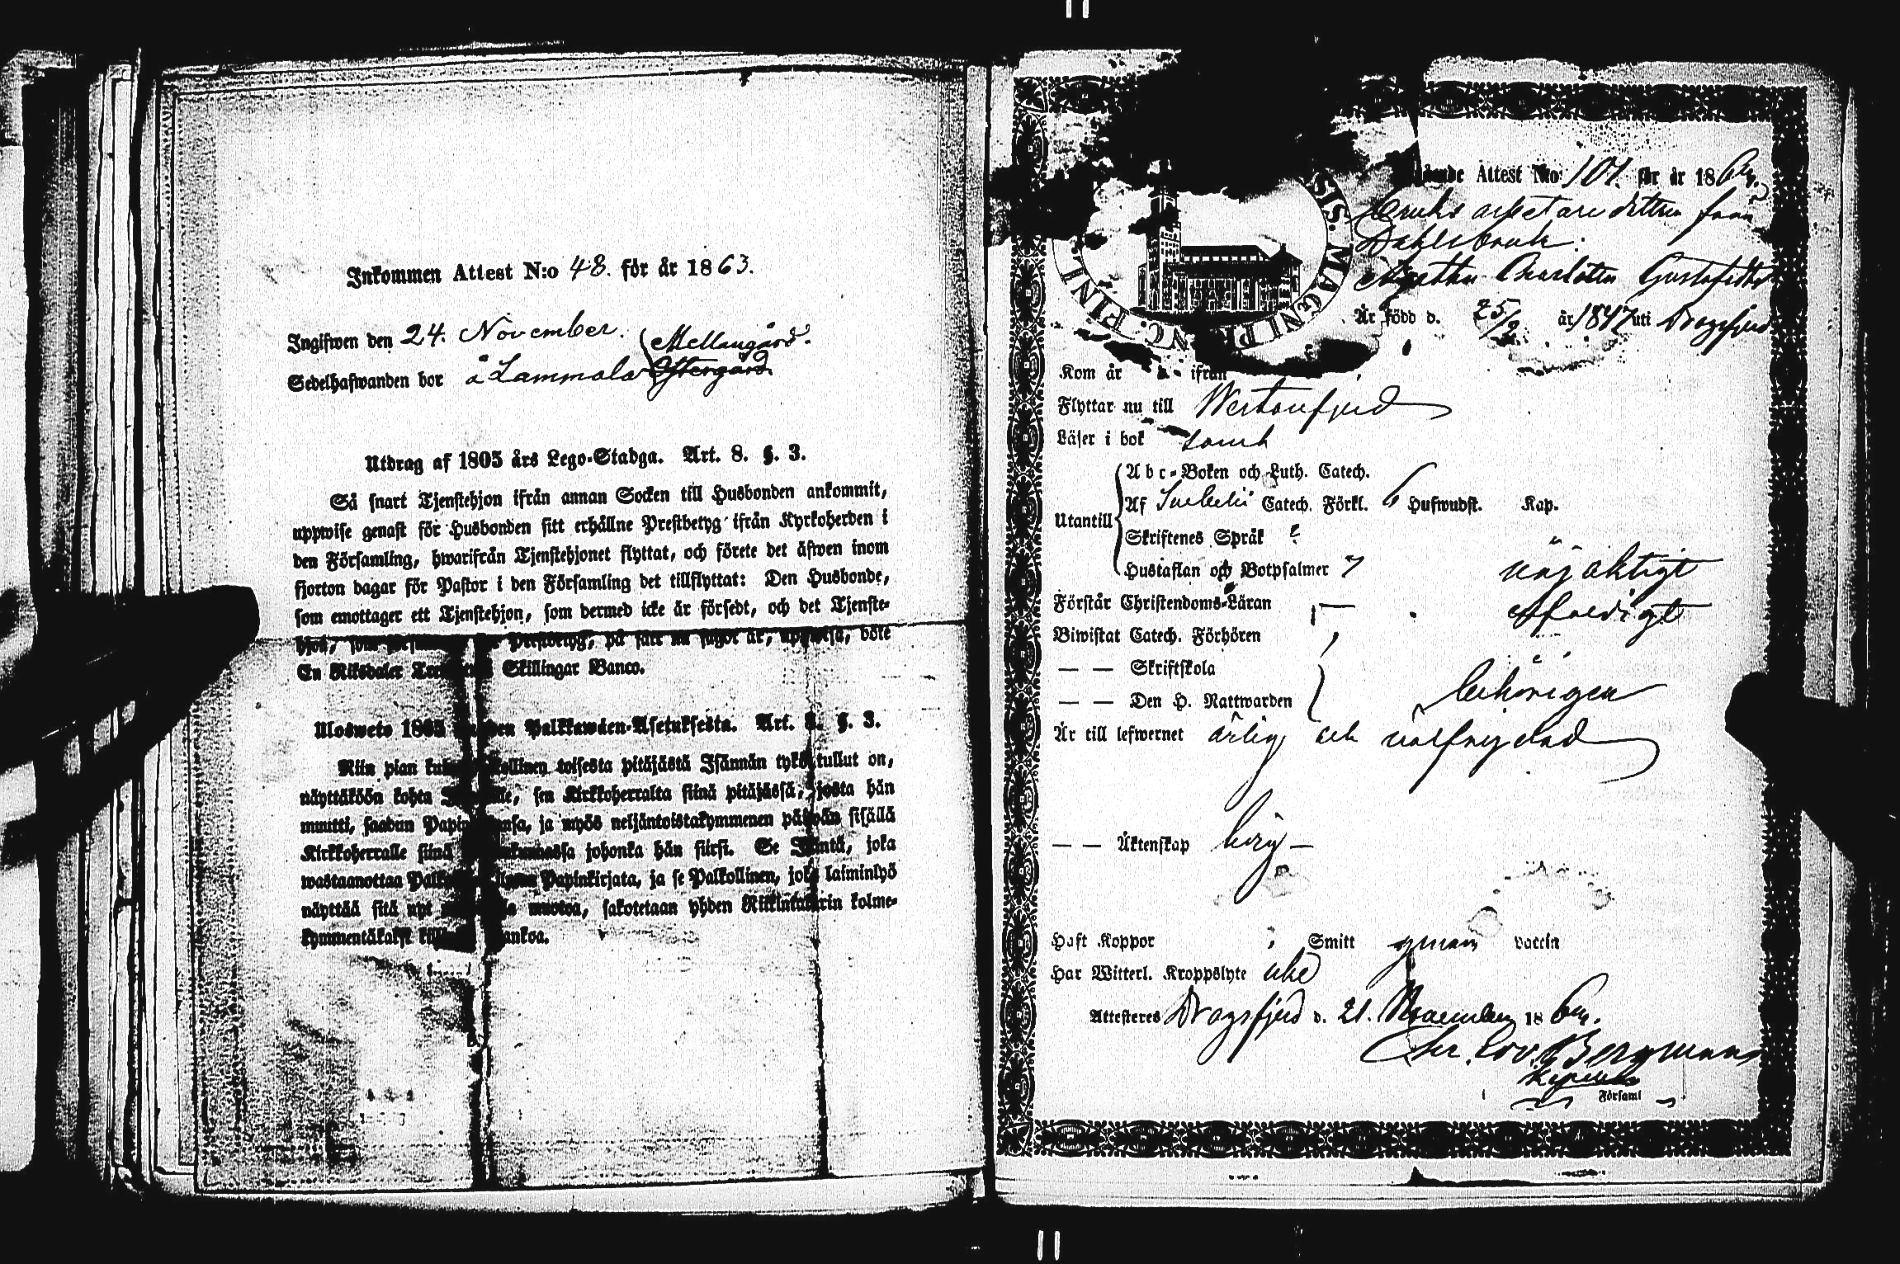 Inkommen Attest N:o 48. för år 1863.
Ingifwen den 24. November.
Mellangård.
Sedelhafwanden bor å Lammala Öfvergård
Utdrag af 1805 års Lego-Stadga. Art. 8. §. 3.
Så snart Tjenstehjon ifrån annan Socken till Husbonden ankommit,
uppwise genast för Husbonden sitt erhållne Prestbetyg ifrån Kyrkoherden i
den Församling, hwarifrån Tjenstehjonet flyttat, och förete det äfwen inom
fjorton dagar för Pastor i den Församling det tillflyttat: Den Husbonde,
som emottager ett Tjenstehjon, som dermed icke är försedt, och det Tjenste-
hjon, som Prestbetyg, på sätt nu sagdt är, uppwisa, böte
En Riksdaler Skillingar Banco.
Ulosweto 1805 Palkkawäen-Asetuksesta. Art. §. 3.
Niin pian toisesta pitäjästä Isännän tykö tullut on,
näyttäköön kohta sen Kirkkoherralta siinä pitäjässä, josta hän
muutti, saadun ja myös neljäntoistakymmenen päiwän sisällä
Kirkkoherralle siinä johonka hän siirsi. Se Isäntä, joka
wastaanottaa Papinkirjata, ja se Palkollinen, joka laiminlyö
näyttää sitä nyt muotoa, sakotetaan yhden Riikintalarin kolme-
kymmentäkaksi
Attest N:o 101. för år 186
Bruks arbetare dottren från
Dahlsbruk:
Agatha Charlotta Gustafsdtr
Är född d. 25/2 år 1847 uti Dragsfjerd
SIS. MAGNI PRINC. FINL
Kom år ifrån
Flyttar nu till Westanfjerd
Läser i bok samt
Abc-Boken och Luth. Catech.
Utantill Af Svebelii Catech. Förkl. 6 Hufwudst. Kap.
Skriftenes Språk
Hustaflan och Botpsalmer 7 nöjaktigt
Förstår Christendoms-Läran
Biwistat Catech. Förhören
— — Skriftskola
— — Den H. Nattwarden behörigen
Är till lefwernet ärlig och välfrejdad
— — Äktenskap ledig —
Haft Koppor Smitt genom vaccin
Har Witterl. Kroppslyte icke
Attesteres Dragsfjerd d. 21. November 186
Bergman
Församl